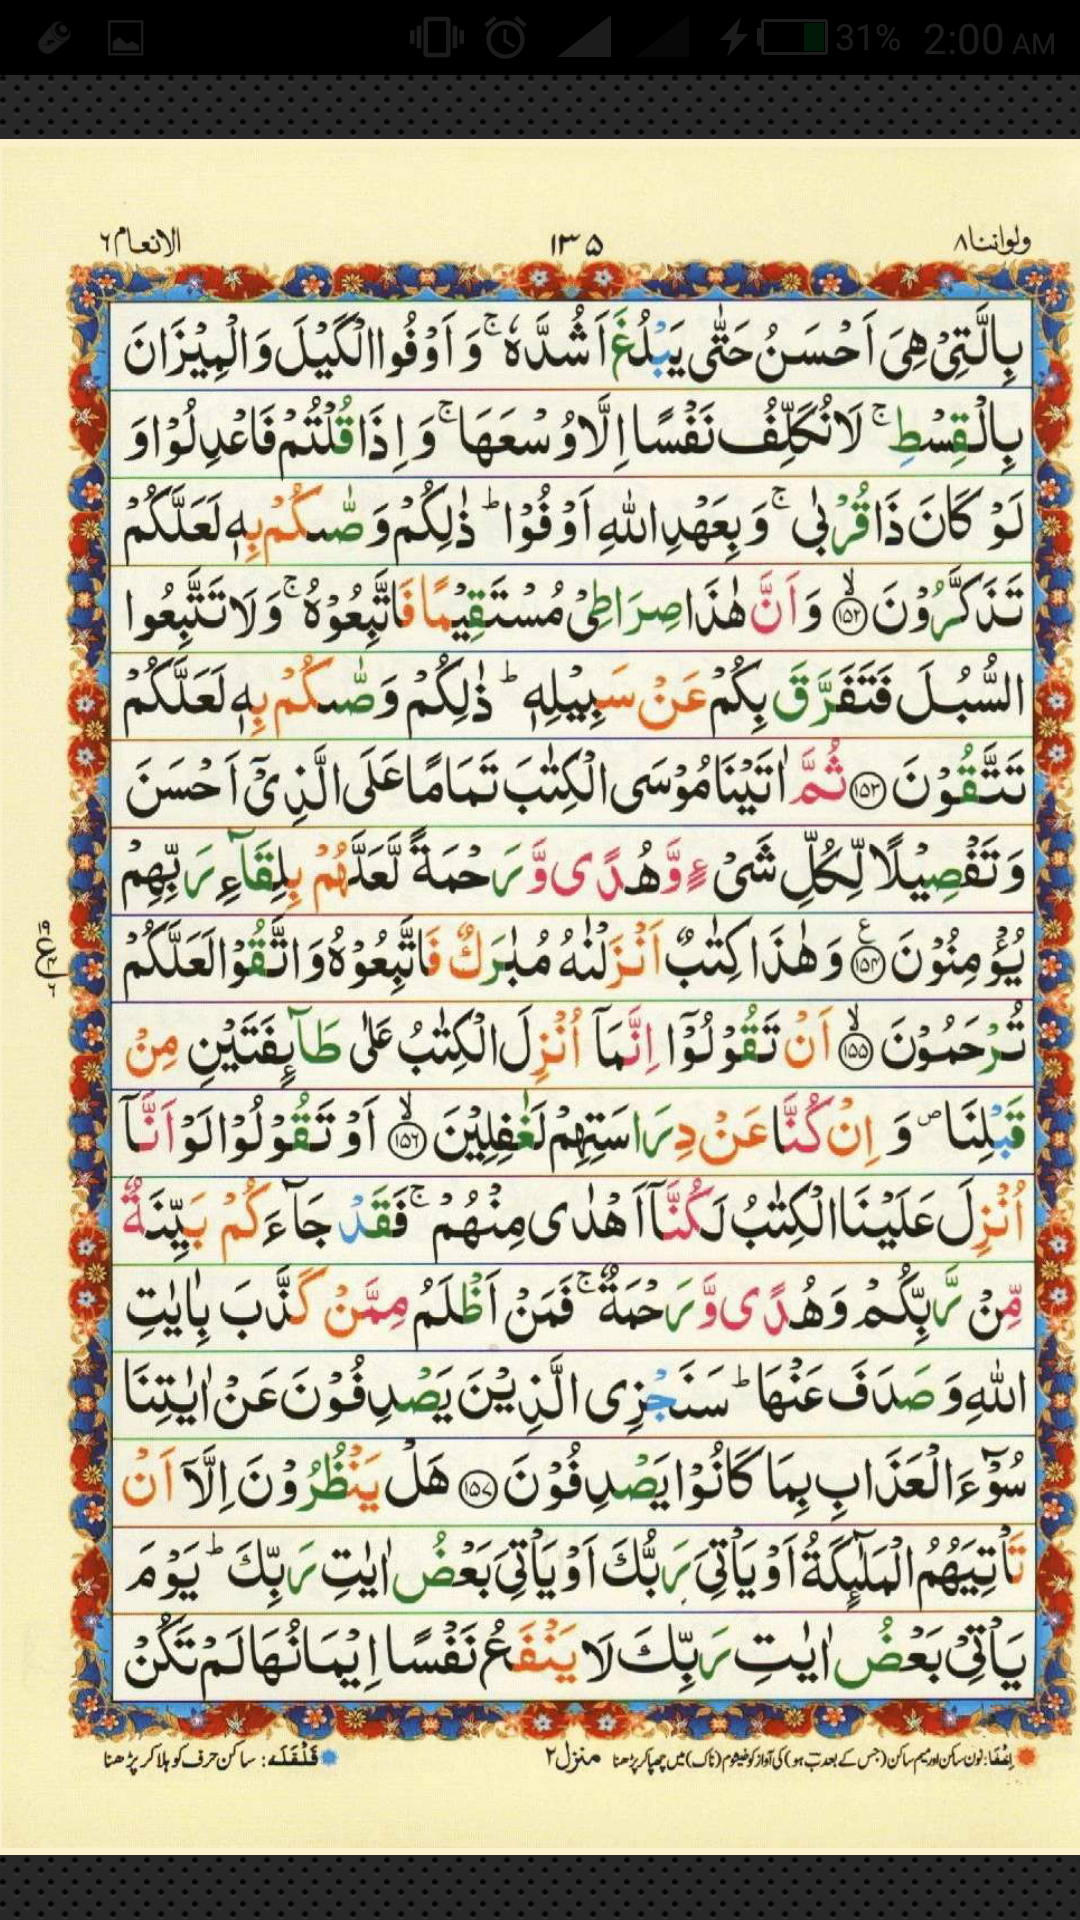 31% 2:00 AM
ولواننا ٨ ١٣٥ الانعام ٦
بِالَّتِیْ هِیَ اَحْسَنُ حَتّٰی یَبْلُغَ اَشُدَّهٗ ۚ وَ اَوْفُوا الْكَیْلَ وَ الْمِیْزَانَ
بِالْقِسْطِ ۚ لَا نُكَلِّفُ نَفْسًا اِلَّا وُسْعَهَا ۚ وَ اِذَا قُلْتُمْ فَاعْدِلُوْا وَ
لَوْ كَانَ ذَا قُرْبٰی ۚ وَ بِعَهْدِ اللّٰهِ اَوْفُوْا ؕ ذٰلِكُمْ وَصّٰىكُمْ بِهٖ لَعَلَّكُمْ
تَذَكَّرُوْنَ ۙ﴿۱۵۲﴾ وَ اَنَّ هٰذَا صِرَاطِیْ مُسْتَقِیْمًا فَاتَّبِعُوْهُ ۚ وَ لَا تَتَّبِعُوا
السُّبُلَ فَتَفَرَّقَ بِكُمْ عَنْ سَبِیْلِهٖ ؕ ذٰلِكُمْ وَصّٰىكُمْ بِهٖ لَعَلَّكُمْ
تَتَّقُوْنَ ﴿۱۵۳﴾ ثُمَّ اٰتَیْنَا مُوْسَی الْكِتٰبَ تَمَامًا عَلَی الَّذِیْۤ اَحْسَنَ
وَ تَفْصِیْلًا لِّكُلِّ شَیْءٍ وَّ هُدًی وَّ رَحْمَةً لَّعَلَّهُمْ بِلِقَآءِ رَبِّهِمْ
یُؤْمِنُوْنَ ﴿۱۵۴﴾ ع وَ هٰذَا كِتٰبٌ اَنْزَلْنٰهُ مُبٰرَكٌ فَاتَّبِعُوْهُ وَ اتَّقُوْا لَعَلَّكُمْ
تُرْحَمُوْنَ ۙ﴿۱۵۵﴾ اَنْ تَقُوْلُوْۤا اِنَّمَاۤ اُنْزِلَ الْكِتٰبُ عَلٰی طَآىِٕفَتَیْنِ مِنْ
قَبْلِنَا ۪ وَ اِنْ كُنَّا عَنْ دِرَاسَتِهِمْ لَغٰفِلِیْنَ ۙ﴿۱۵۶﴾ اَوْ تَقُوْلُوْا لَوْ اَنَّاۤ
اُنْزِلَ عَلَیْنَا الْكِتٰبُ لَكُنَّاۤ اَهْدٰی مِنْهُمْ ۚ فَقَدْ جَآءَكُمْ بَیِّنَةٌ
مِّنْ رَّبِّكُمْ وَ هُدًی وَّ رَحْمَةٌ ۚ فَمَنْ اَظْلَمُ مِمَّنْ كَذَّبَ بِاٰیٰتِ
اللّٰهِ وَ صَدَفَ عَنْهَا ؕ سَنَجْزِی الَّذِیْنَ یَصْدِفُوْنَ عَنْ اٰیٰتِنَا
سُوْٓءَ الْعَذَابِ بِمَا كَانُوْا یَصْدِفُوْنَ ﴿۱۵۷﴾ هَلْ یَنْظُرُوْنَ اِلَّاۤ اَنْ
تَاْتِیَهُمُ الْمَلٰٓىِٕكَةُ اَوْ یَاْتِیَ رَبُّكَ اَوْ یَاْتِیَ بَعْضُ اٰیٰتِ رَبِّكَ ؕ یَوْمَ
یَاْتِیْ بَعْضُ اٰیٰتِ رَبِّكَ لَا یَنْفَعُ نَفْسًا اِیْمَانُهَا لَمْ تَكُنْ
اِخفا: نون ساکن اور میم ساکن (جس کے بعد ب ہو) کی آواز کو خیشوم (ناک) میں چھپا کر پڑھنا منزل ٢ قَلْقَلَه: ساکن حرف کو ہلا کر پڑھنا